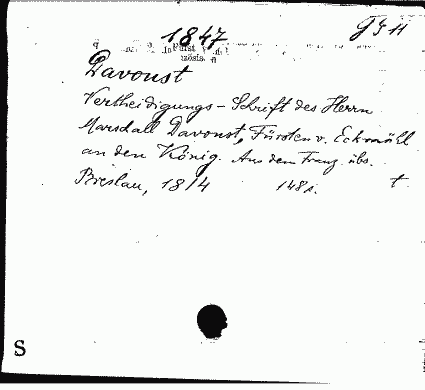 1847
Davoust
Vertheidigungs-Schrift des Herrn
Marschall Davoust, Fürsten v. Eckmühl
an den König. Aus dem Franz. übs.
Breslau, 1814 148 s. t
S